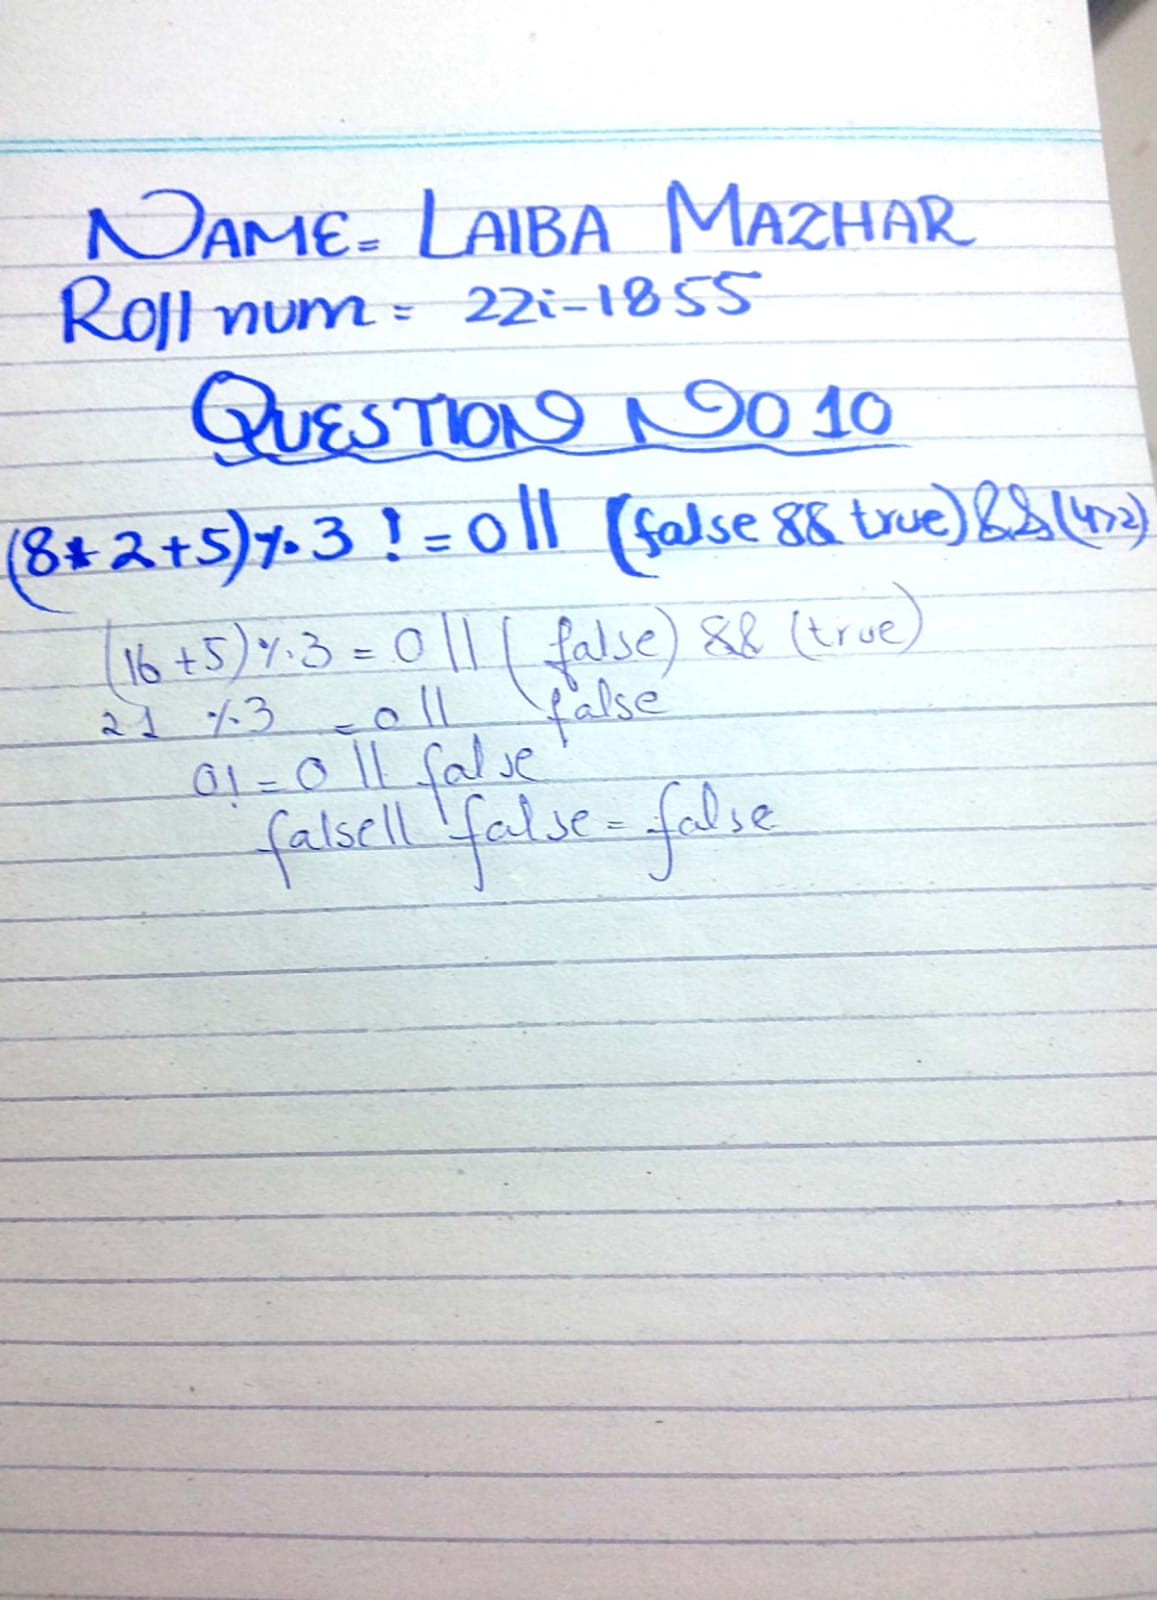 NAME= LAIBA MAZHAR
Roll num = 22i-1855
QUESTION NO 10
(8*2+5)%3 != 0 || (false && true) && (4>2)
(16+5)%3 = 0 || (false) && (true)
21 %3 = 0 || false
0! = 0 || false
false || false = false